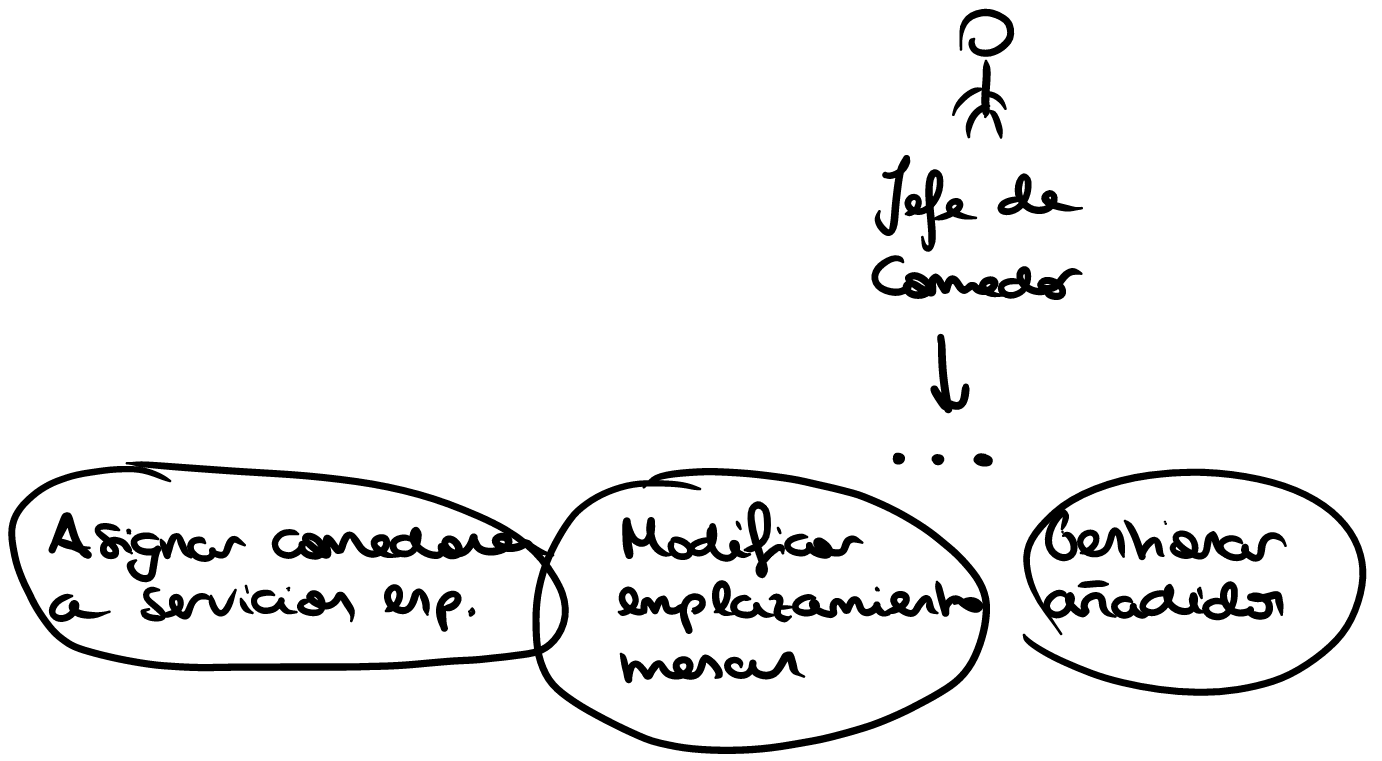 Jefe de
Comedor
...
Asignar comedores
a servicios esp.
Modificar
emplazamiento
mesas
Gestionar
añadidos